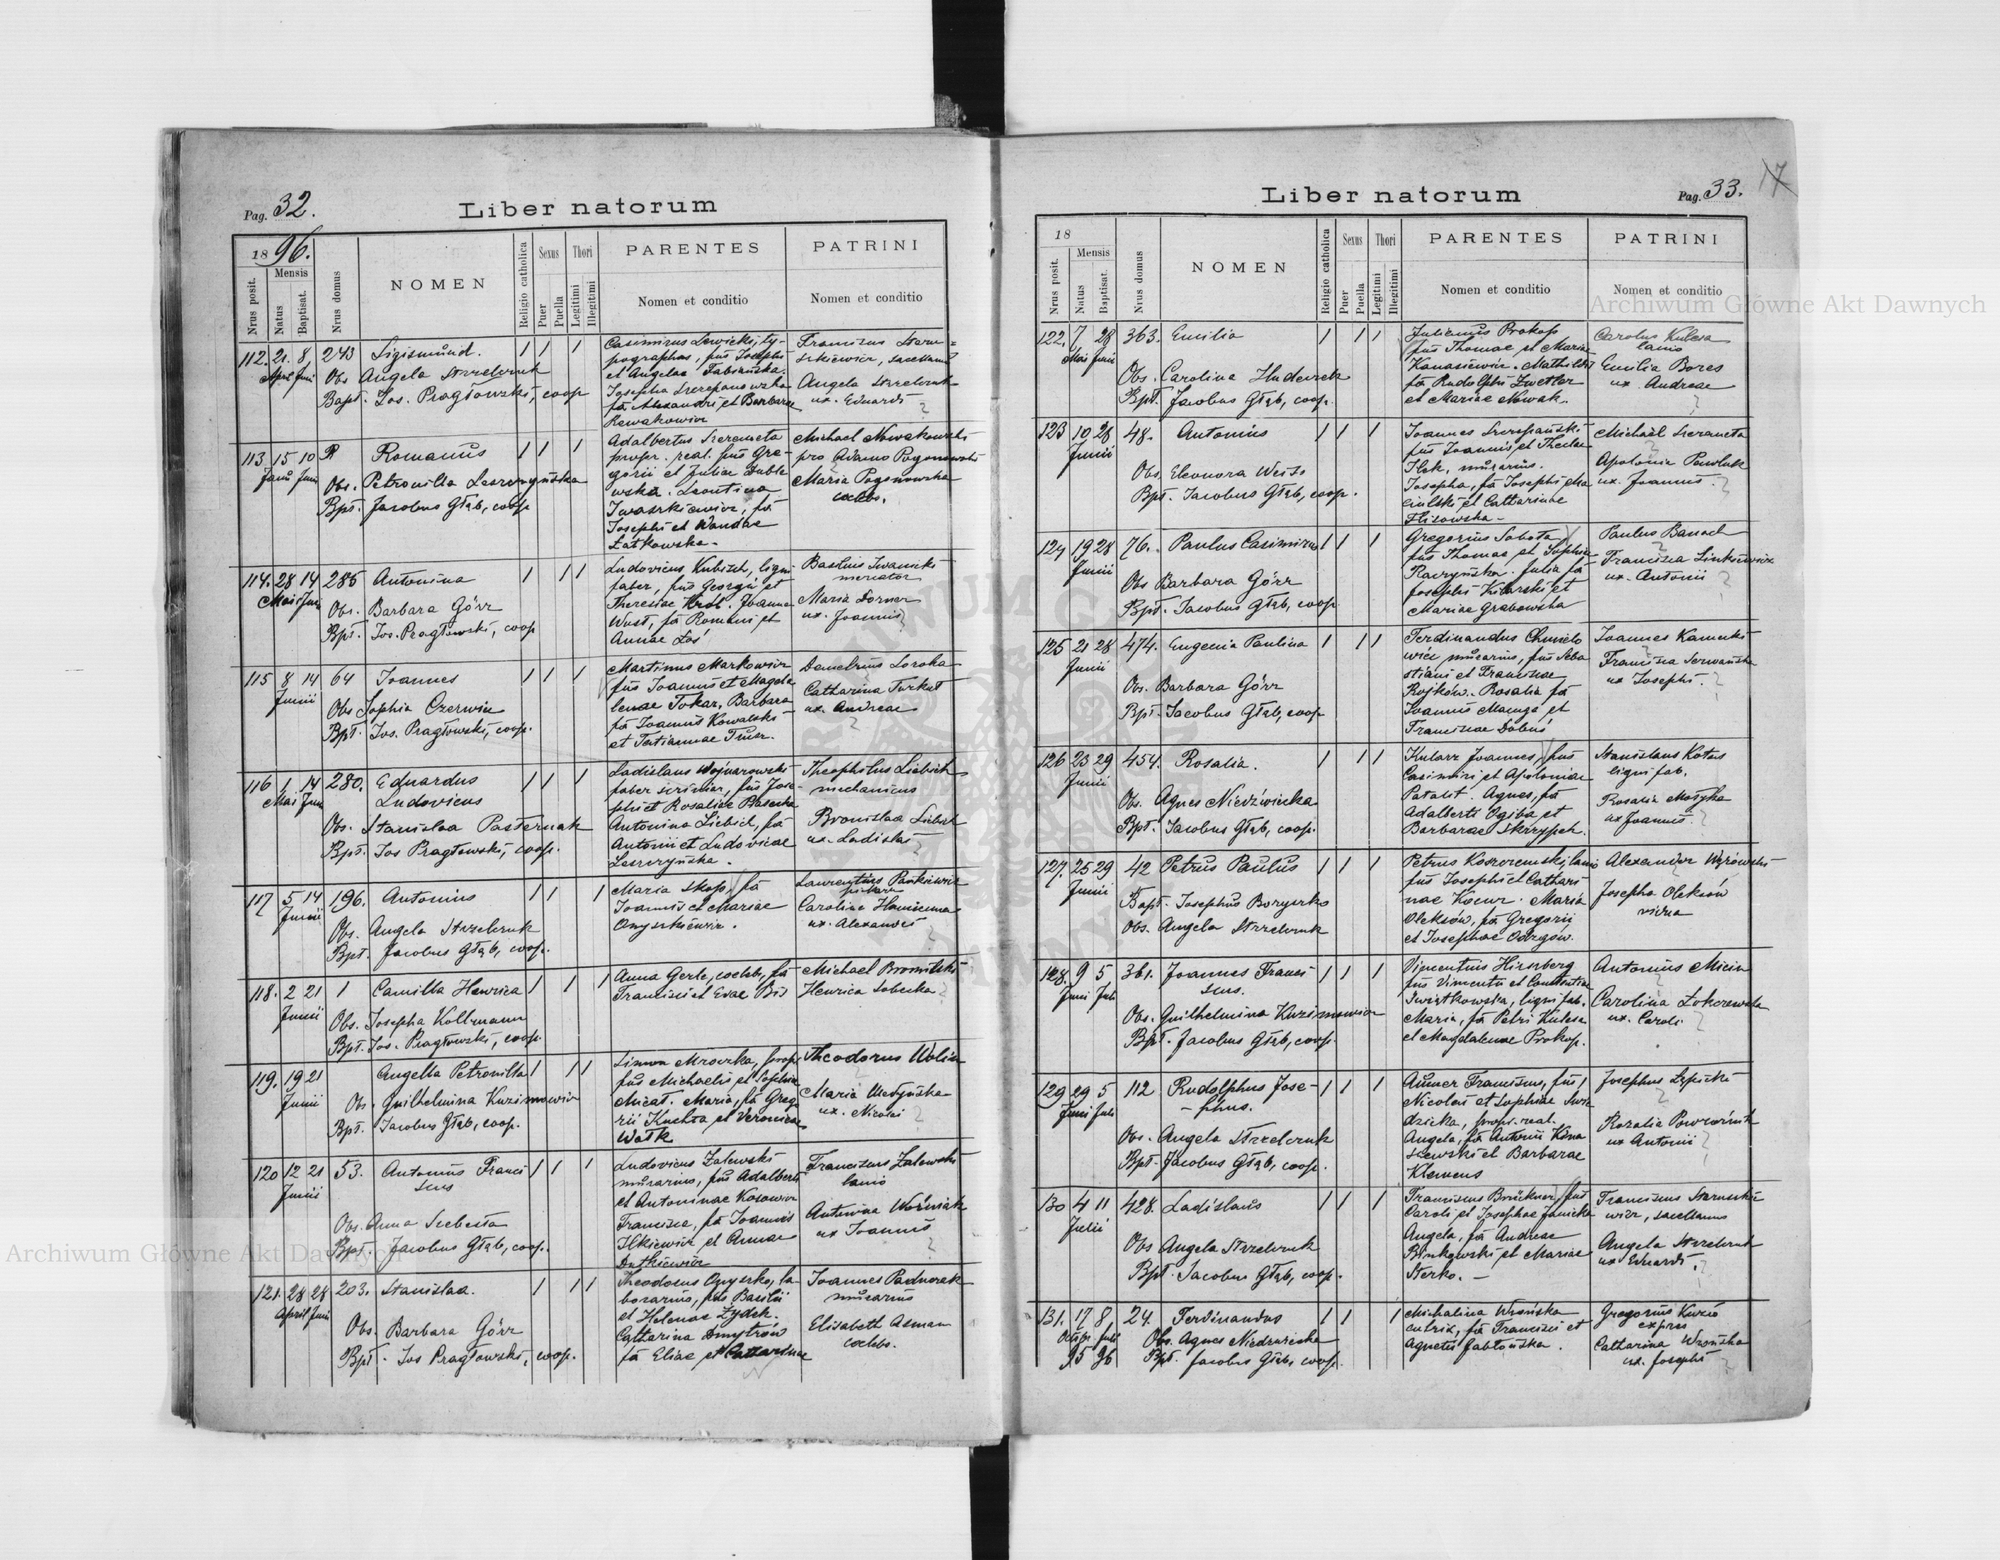 Pag. 32.
Liber natorum
1896.
Nrus posit.
Mensis
Natus
Baptisat.
Nrus domus
NOMEN
Religio catholica
Sexus
Puer
Puella
Thori
Legitimi
Illegitimi
PARENTES
Nomen et conditio
PATRINI
Nomen et conditio
112. 21. 8. 243 Sigismund. 1 1 1
April Juni
Obs. Angela Strzelczuk
Bapt. Jos. Pragłowski, coop
Casimirus Lewicki, ty-
pographus, fius Josephi
et Angelae
Josepha Szczepanowska
fa Alexandri et Barbarae
Franciscus Staru-
szkiewicz, sacellanus
Angela Strzelczuk
ux. Eduardi
113 15 10 R Romanus 1 1 1
Juni
Obs. Petronilla Leszczyńska
Bpt. Jacobus Głąb, coop
Adalbertus Szeremeta
profes. real. fius Gre-
gorii et Juliae
Leontina
Iwaszkiewicz, fa
Josephi et Wandae
Łatkowska.
Michael Nowakowski
pro Adamo Pogonowski
Maria Pogonowska
coelebs.
114. 28 14 285 Antonina 1 1 1
Mai Juni
Obs. Barbara Görz
Bpt. Jos. Pragłowski, coop
Ludovicus Kubisch, ligni
faber, fius Georgii et
Theresiae Kroł. Joanna
Wust, fa Romani et
Annae Łoś
Basilius Iwanicki
mercator
Maria Dorner
ux. Joannis
115 8 14 64 Joannes 1 1 1
Junii
Obs Sophia Czerwin
Bpt. Jos. Pragłowski, coop.
Martinus Markowicz
fius Joannis et Magda
lenae Tokar. Barbara
fa Joannis Kowalski
et Tatiannae
Demetrius Soroka
Catharina Turkot
ux. Andreae
116 1 14 280. Eduardus 1 1 1
Mai Juni Ludovicus
Obs. Stanislaa Pasternak
Bpt. Jos Pragłowski, coop.
Ladislaus Wojnarowski
faber scriniar, fius Jose-
phi et Rosaliae
Antonina Liebich, fa
Antonii et Ludovicae
Leszczyńska.
Theophilus Liebich
mechanicus
Bronislaa Liebich
ux. Ladislai
117 5 14 196. Antonius 1 1 1
Junii
Obs. Angela Strzelczuk
Bpt. Jacobus Głąb, coop.
Maria Skop, fa
Joannis et Mariae
Onyszkiewicz.
Laurentius Pankiewicz
Carolina
ux. Alexandri
118. 2 21 1 Camilla Henrica 1 1 1
Junii
Obs. Josepha Kollmann
Bpt. Jos. Pragłowski, coop.
Anna Gerle, coelebs, fa
Francisci et Evae
Michael Bromilski
Henrica Sobecka
119. 19 21 Angella Petronilla 1 1 1
Junii
Obs. Guilhelmina Kuzimowicz
Bpt. Jacobus Głąb, coop.
Simon Mroczka,
fius Michaelis et Sophiae
Micat. Maria, fa Grego
rii Kuchta et Veronicae
Wołk
Theodorus Wolin
Maria Medyńska
ux. Nicolai
120 12 21 53. Antonius Franci 1 1 1
Junii scus
Obs. Anna Szebesta
Bpt. Jacobus Głąb, coop.
Ludovicus Zalewski
murarius, fius Adalberti
et Antoninae Kosowicz
Francisca, fa Joannis
Ilkiewicz et Annae
Dutkiewicz
Franciscus Zalewski
lanio
Antonina Woźniak
ux Joannis
121. 28 28 203. Stanislaa. 1 1 1
April Juni
Obs. Barbara Görz
Bpt. Jos Pragłowski, coop.
Theodosius Onyszko, la
borarius, fius Basilii
et Helenae Zydek.
Catharina Dmytrów
fa Eliae et Catharinae
Joannes Padworak
murarius
Elisabeth Asman
coelebs.
Pag. 33.
17
Liber natorum
18
Nrus posit.
Mensis
Natus
Baptisat.
Nrus domus
NOMEN
Religio catholica
Sexus
Puer
Puella
Thori
Legitimi
Illegitimi
PARENTES
Nomen et conditio
PATRINI
Nomen et conditio
122. 7 28 363. Emilia 1 1 1
Mai Juni
Obs. Carolina Huderek
Bpt. Jacobus Głąb, coop.
Julianus Prokop
fius Thomae et Mariae
Kanasiewicz. Mathilda
fa Rudolphi Zwetler
et Mariae Nowak.
Carolus Kulesa
lanio
Emilia Bores
ux. Andreae
123 10 28 48. Antonius 1 1 1
Junii
Obs. Eleonora Weiss
Bpt. Jacobus Głąb, coop.
Joannes Szczepański
fius Joannis et Theclae
Ilek, murarius.
Josepha, fa Josephi Ma
ciulski et Catharinae
Flisowska.
Michael Szeremeta
Apolonia Pawluk
ux. Joannis.
124 19 28 76. Paulus Casimirus 1 1 1
Junii
Obs Barbara Görz
Bpt. Jacobus Głąb, coop
Gregorius Sobota
fius Thomae et Sophiae
Raczyńska. Julia fa
Josephi Kilarski et
Mariae Grabowska
Paulus Banach
Francisca Linkiewicz
ux. Antonii
125 21 28 474. Eugenia Paulina 1 1 1
Junii
Obs. Barbara Görz
Bpt. Jacobus Głąb, coop
Ferdinandus Chmielo
wiec murarius, fius Seba
stiani et Franciscae
Bojków. Rosalia fa
Joannis Maciuga et
Franciscae Dobuś
Joannes Kamecki
Francisca Serwańska
ux Josephi.
126 23 29 454. Rosalia. 1 1 1
Junii
Obs. Agnes Niedźwiecka
Bpt. Jacobus Głąb, coop.
Kularz Joannes, fius
Casimiri et Apoloniae
Patalit. Agnes, fa
Adalberti Ogiba et
Barbarae Skrzypek.
Stanislaus Kotas
ligni fab.
Rosalia Motyka
ux Joannis.
127. 25 29 42 Petrus Paulus 1 1 1
Junii
Bapt. Josephus Boryszko
Obs. Angela Strzelczuk
Petrus Koszoremski, lanio
fius Josephi et Cathari
nae Kocur. Maria
Oleksów, fa Gregorii
et Josephae Odrzgów.
Alexander
Josepha Oleksów
vidua
128. 9 5 361. Joannes Franci 1 1 1
Juni Juli scus.
Obs. Guilhelmina Kuzimowicz
Bpt. Jacobus Głąb, coop.
Vincentius Hirnberg
fius Vincentii et Constantiae
Swiątkowska, ligni fab.
Maria, fa Petri Kulesa
et Magdalenae Prokop.
Antonius Micin
Carolina Łokczewska
ux. Caroli
129 29 5 112 Rudolphus Jose- 1 1 1
Juni Juli phus.
Obs. Angela Strzelczuk
Bpt. Jacobus Głąb, coop.
Aumer Franciscus, fius
Nicolai et Sophiae Swie
dzicka, prof. real.
Angela, fa Antonii Kona
szewski et Barbarae
Klemens
Josephus Lepicki
Rozalia Powroźnik
ux Antonii
130 4 11 428. Ladislaus 1 1 1
Julii
Obs Angela Strzelczuk
Bpt. Jacobus Głąb, coop.
Franciscus Brückner, fius
Caroli et Josephae Janicka
Angela, fa Andreae
Binkowski et Mariae
Sterko.
Franciscus Staruszkie
wicz, sacellanus
Angela Strzelczuk
ux Eduardi.
131. 17 8 24. Ferdinandus 1 1 1
Octobr. Juli
95 96
Obs. Agnes Niedzwiecka
Bpt. Jacobus Głąb, coop.
Michalina Wrońska
culrix, fa Francisci et
Agnetis Jabłońska.
Gregorius Kuzio
Catharina Wrońska
ux. Josephi
Archiwum Główne Akt Dawnych
Archiwum Główne Akt Dawnych